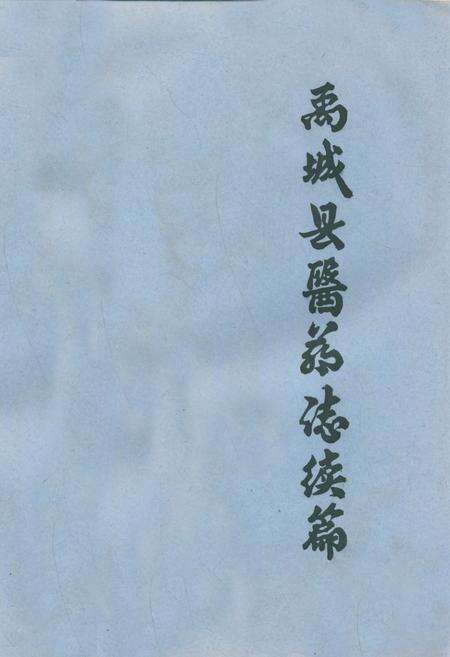 禹城县醫药誌续篇